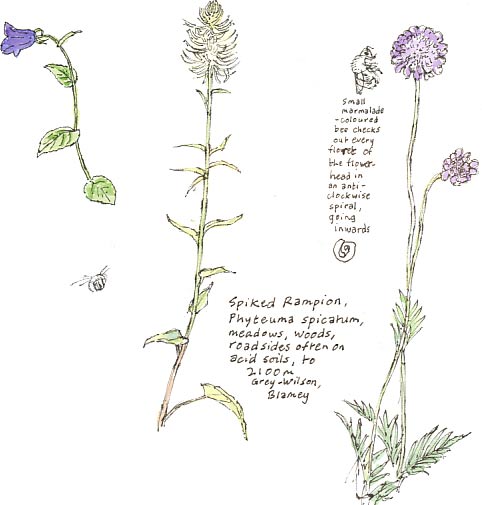 small
marmalade
-coloured
bee checks
out every
floret of
the flower
head in
an anti-
clockwise
spiral,
going
inwards
Spiked Rampion,
Phyteuma spicatum,
meadows, woods,
roadsides often on
acid soils, to
2100m
Grey-Wilson,
Blamey